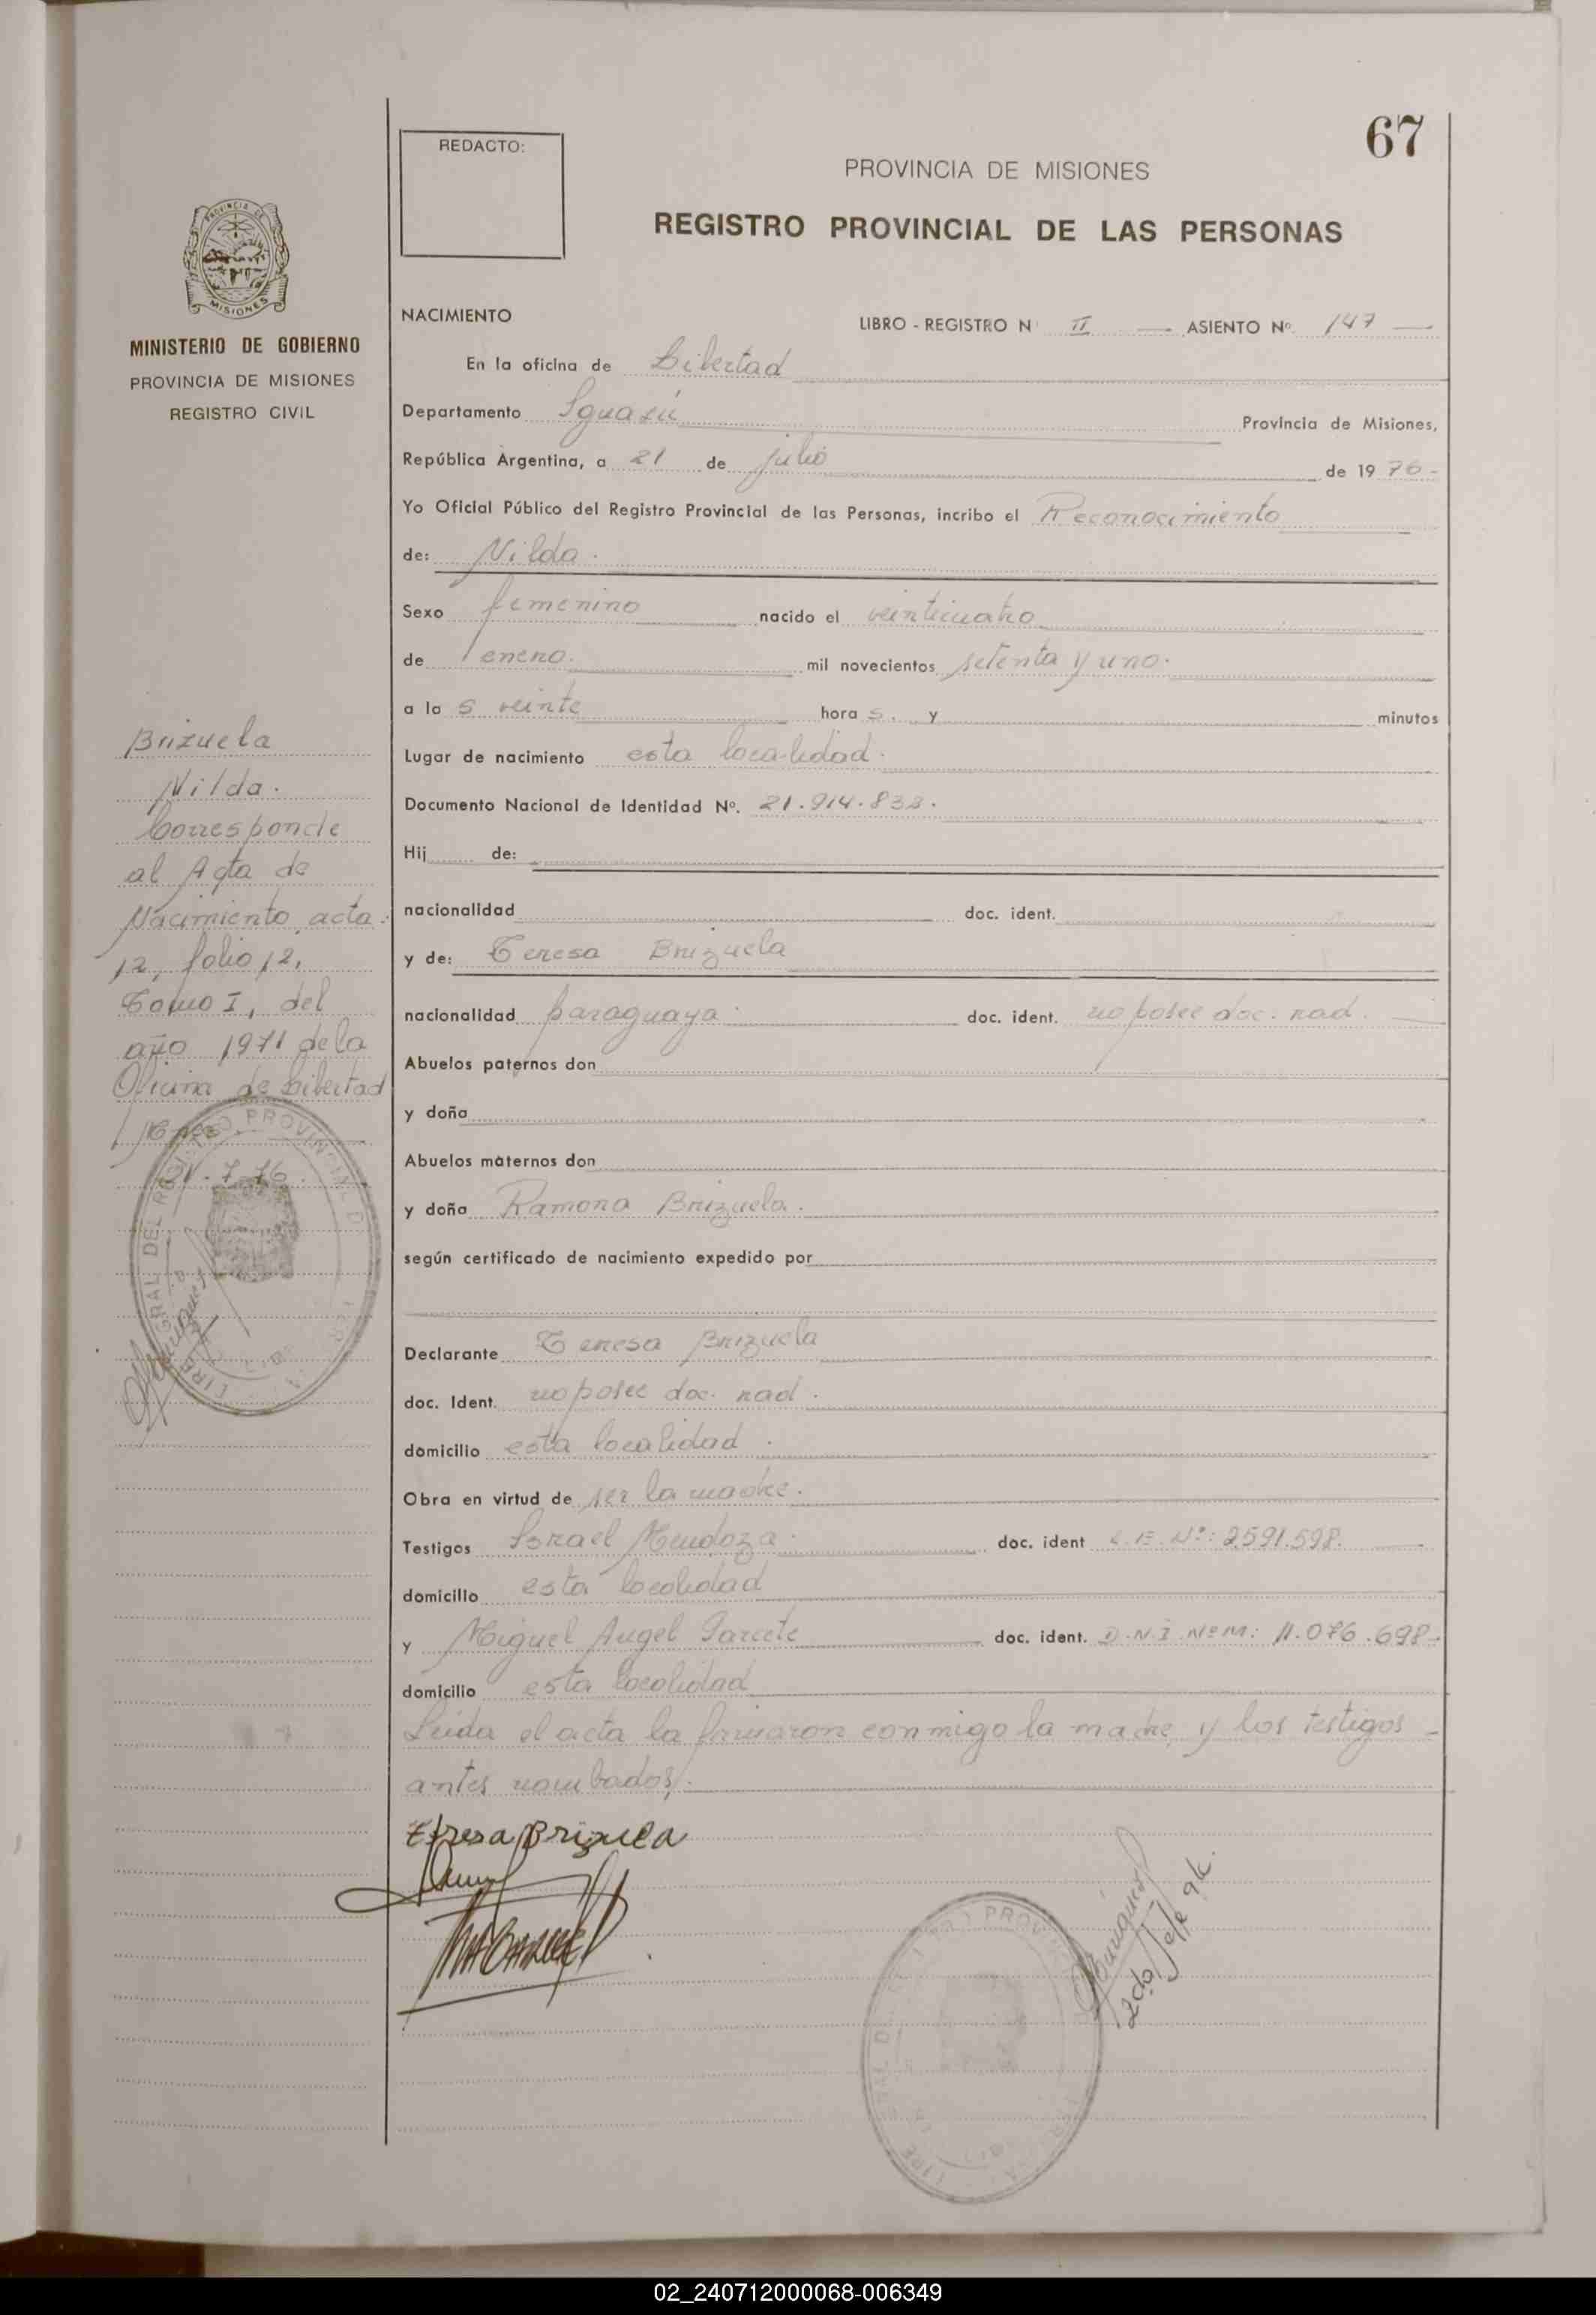 67
REDACTO:
PROVINCIA DE MISIONES
REGISTRO PROVINCIAL DE LAS PERSONAS
MISIONES
MINISTERIO DE GOBIERNO
PROVINCIA DE MISIONES
REGISTRO CIVIL
Brizuela
Nilda.
Corresponde
al Acta de
Nacimiento acta:
12, folio 12,
Tomo I, del
año 1971 de la
Oficina de Libertad
NACIMIENTO
LIBRO - REGISTRO Nº II ASIENTO Nº. 147
En la oficina de Libertad
Departamento Iguazú Provincia de Misiones,
República Argentina, a 21 de julio de 1976-
Yo Oficial Público del Registro Provincial de las Personas, incribo el Reconocimiento
de: Nilda.
Sexo femenino nacido el veinticuatro
de enero. mil novecientos setenta y uno.
a la s veinte hora s. y minutos
Lugar de nacimiento esta localidad.
Documento Nacional de Identidad Nº. 21.914.832.
Hij de:
nacionalidad doc. ident.
y de: Teresa Brizuela
nacionalidad paraguaya doc. ident. no posee doc. nad.
Abuelos paternos don
y doña
Abuelos maternos don
y doña Ramona Brizuela.
según certificado de nacimiento expedido por
Declarante Teresa Brizuela
doc. Ident. no posee doc. nad.
domicilio esta localidad.
Obra en virtud de ser la madre.
Testigos Israel Mendoza. doc. ident L.E. Nº: 2591.598.
domicilio esta localidad
y Miguel Angel Garcete doc. ident. D.N.I. NºM: 11.076.698-
domicilio esta localidad
Leída el acta la firmaron conmigo la madre y los testigos
antes nombados.
Teresa Brizuela
2da Jefe
02_240712000068-006349